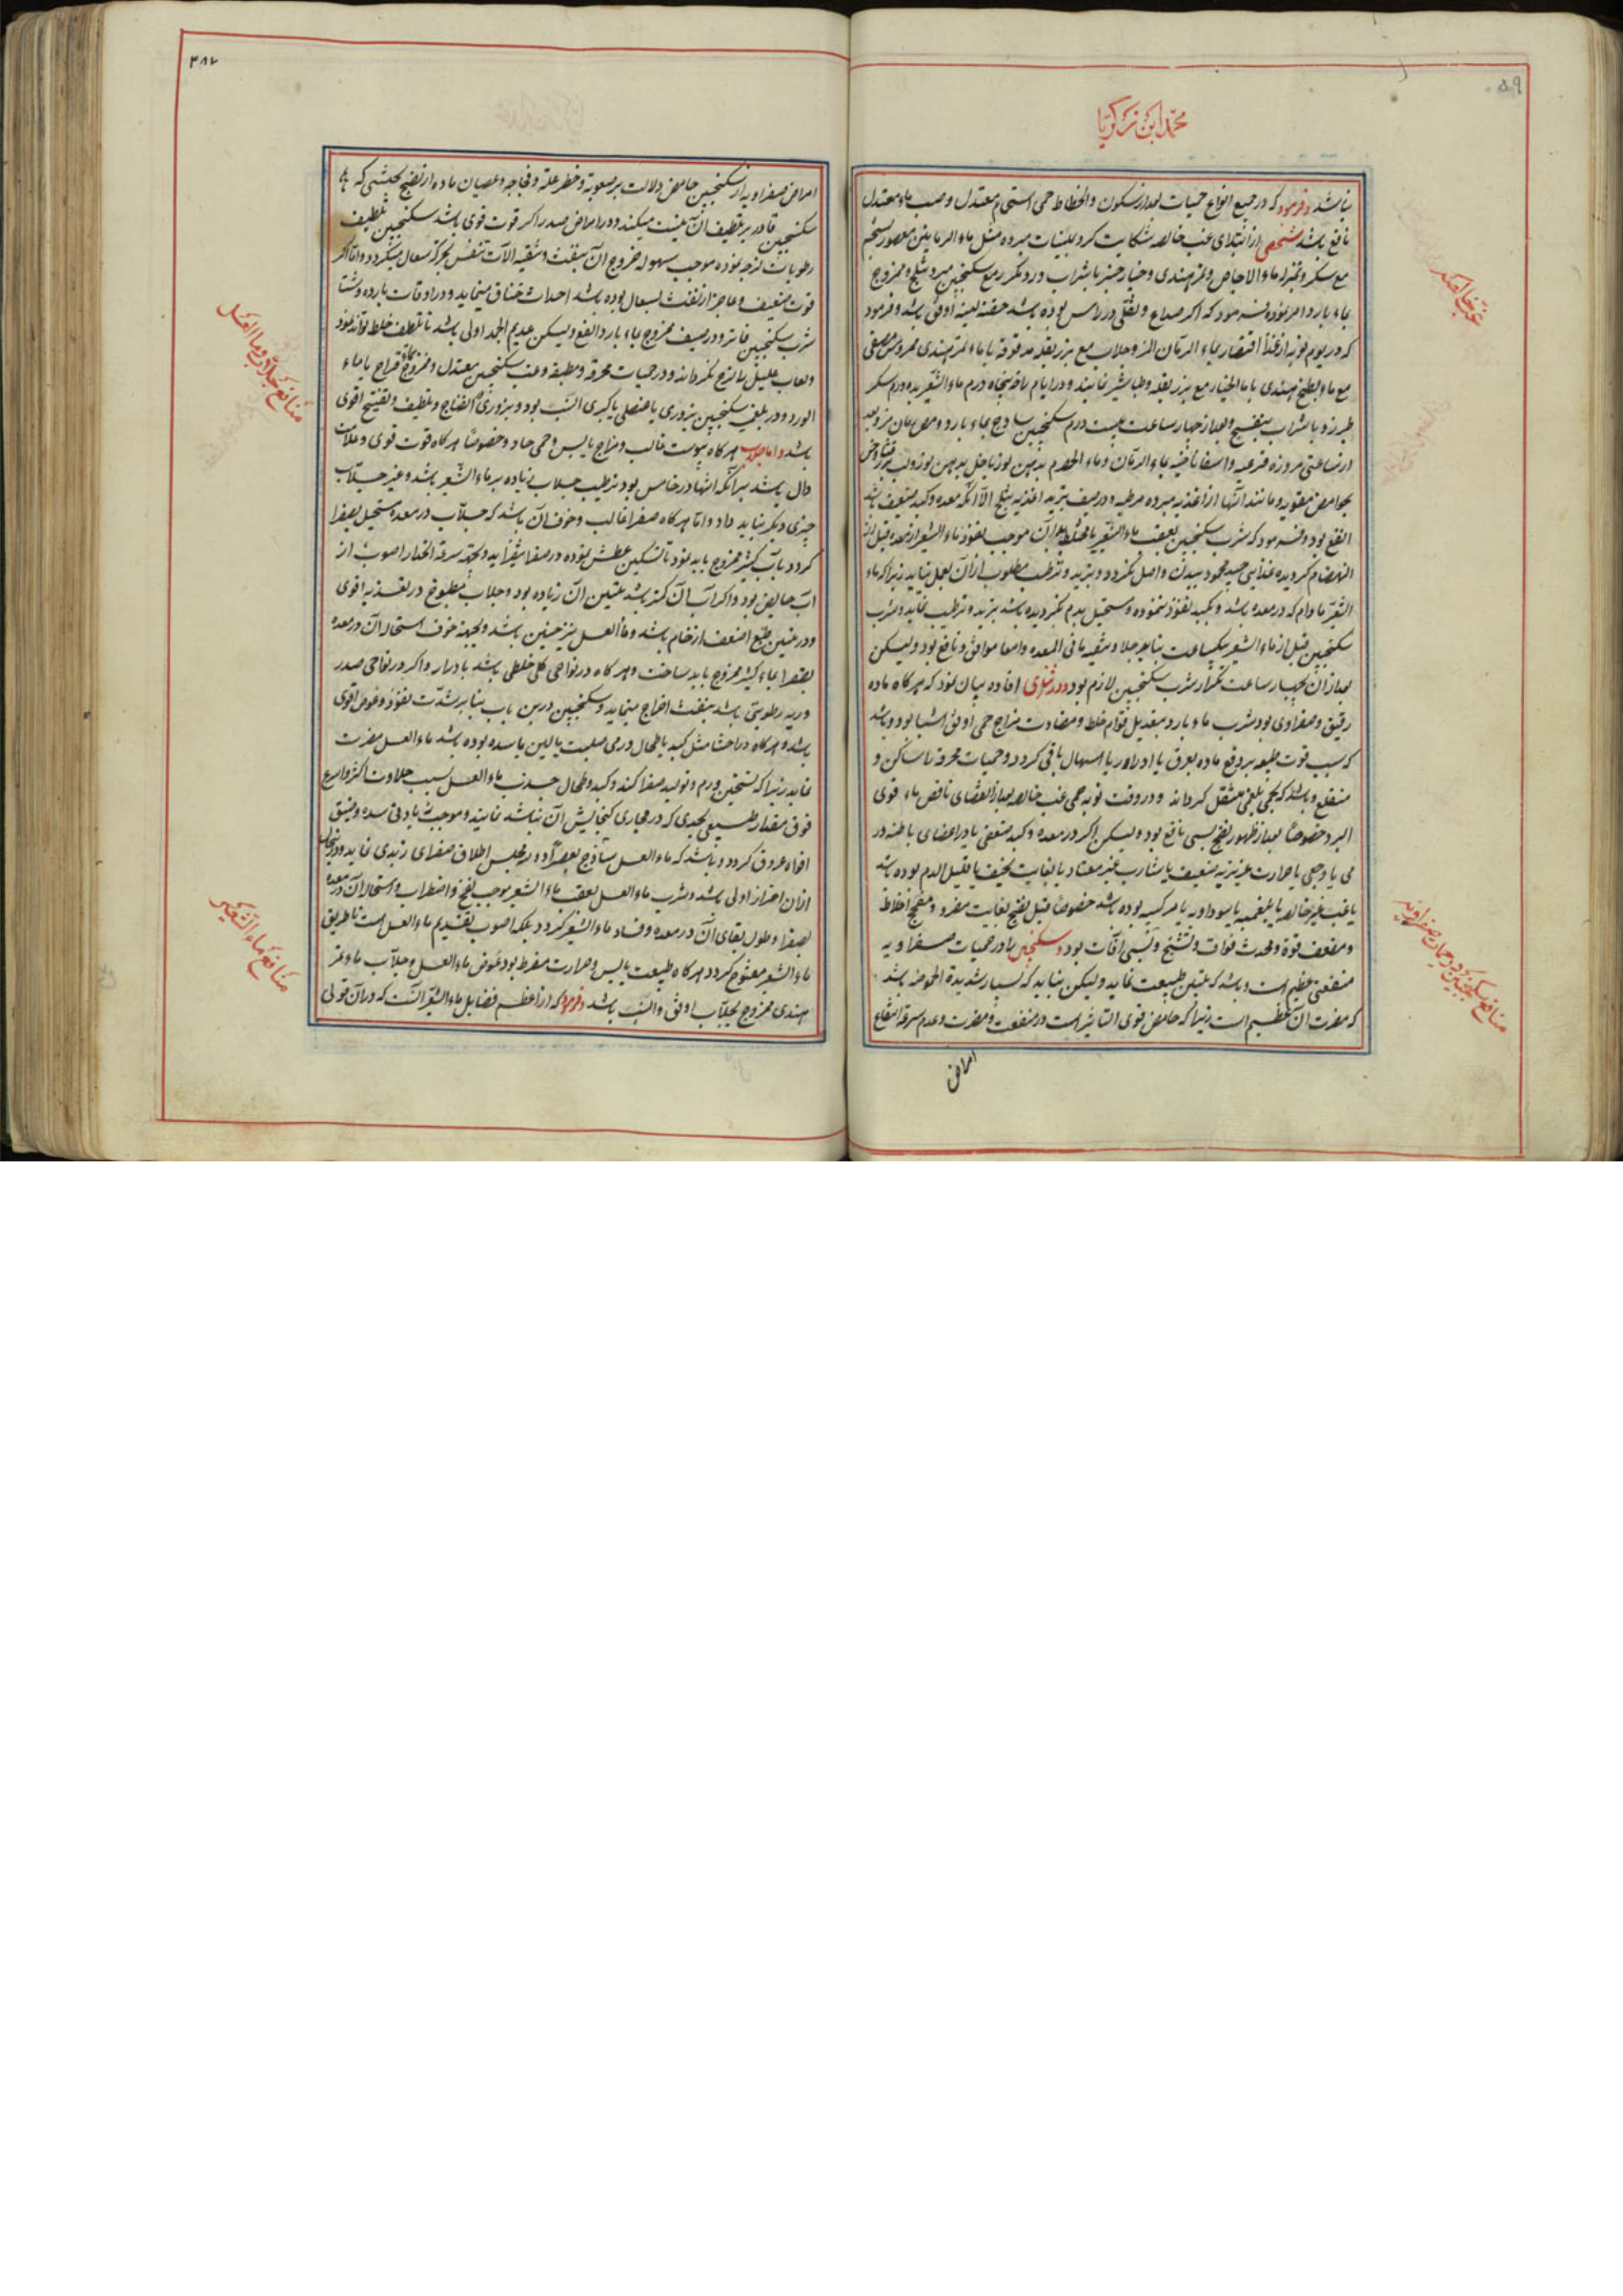 محمد ابن زکریا
نباشد و فرمود که در جمیع انواع حمیات بعد از سکون و انحطاط حمی استحمام معتدل و صب ماء معتدل
نافع باشد شخصی از ابتدای غب خالصه شکایت کرد بملینات مبرده مثل ماء الرمانین معصور بشحم
مع سکر و ماء الاجاص و تمر هندی و خیار چنبر با شراب ورد مکرر مع سکنجبین مبرد بثلج و ممزوج
بماء بارد امر نموده فرمود که اگر صداع و ثقلی در راس بوده باشد حقنه لینه اوفق باشد و فرمود
که در یوم نوبه از غذا اقتصار بماء الرمان المز و جلاب مع بزر بقله یا ماء تمر هندی ممروس مصفی
مع ماء البطیخ هندی یا ماء الخیار مع بزر بقله و طباشیر نمایند و در ایام راحه پنجاه درم ماء الشعیر بده درم سکر
طبرزد یا شراب بنفسج و بعد از چهار ساعت بیست درم سکنجبین ساذج بماء بارد و مص رمان مز و بعد
از ساعتی مزوره قرعیه و اسفاناخیه بماء الرمان و ماء الحصرم بدهن لوز
بحوامض مقویه و مانند آنها از اغذیه مبرده مرطبه و در صیف تبرید اغذیه بثلج الا آنکه معده و کبد ضعیف باشد
انفع بود و فرمود که شرب سکنجبین بعقب ماء الشعیر یا مختلط بآن موجب نفوذ ماء الشعیر از معده قبل از
انهضام گردیده غذایی جید محمود ببدن واصل نگردد و تبرید و ترطیب مطلوب از آن بعمل نیاید زیرا که ماء
الشعیر مادام که در معده باشد و بکبد نفوذ ننموده و مستحیل بدم نگردیده باشد تبرید و ترطیب نماید و شرب
سکنجبین قبل از ماء الشعیر بیکساعت بنابر جلا و تنقیه ما فی المعده و امعا موافق و نافع بود ولیکن
بعد از آن بچهار ساعت تکرار شرب سکنجبین لازم بود و در افاده بیان نمود که هرگاه ماده
رقیق و صفراوی بود شرب ماء بارد بتعدیل قوام خلط و مضادت مزاج حمی اوفق اشیا بود و باشد
که سبب قوت طبیعه بر دفع ماده بعرق یا ادرار یا اسهال باقی گردد و حمیات محرقه را ساکن و
منقلع و باشد که بحمی بلغمی منتقل گرداند و در وقت نوبه حمی غب خالصه بعد از انقضای نافض ماء قوی
البرد خصوصا بعد از ظهور نضج بسی نافع بود ولیکن اگر در معده و کبد ضعفی یا در اعضای باطنه ورمی
یا وجعی یا حرارت غریزیه ضعیف یا شارب غیر معتاد یا بغایت نحیف یا قلیل الدم بوده باشد
یا غب غیر خالصه یا بلغمیه یا سوداویه یا مرکبه بوده باشد خصوصا قبل نضج بغایت مضر و مفجج اخلاط
و مضعف قوة و محدث فواق و تشنج و بسی آفات بود و سکنجبین را در حمیات صفراویه
منفعتی عظیم است و باشد که تلیین طبیعت نماید ولیکن بناید که بسیار شدیدة الحموضه باشد
که مضرت آن عظیم است زیرا که حامض قوی التاثیر است در منفعت و مضرت و عدم سرعة انقلاع
امراض
غب خالصه
منافع سکنجبین در حمیات صفراویه
امراض صفراویه از سکنجبین حامض دلالت بر صعوبة و خطر علة و فجاجه و عصیان ماده از نضج بحیثیتی که
سکنجبین قادر بر تلطیف آن نیست میکند و در امراض صدر اگر قوت قوی باشد سکنجبین تلطیف
رطوبات لزجه نموده موجب سهوله خروج آن بنفث و تنقیه آلات تنفس بحرکه سعال میگردد و اما اگر
قوت ضعیف و عاجز از نفث بسعال بوده باشد احداث خناق مینماید و در اوقات بارده و شتا
شرب سکنجبین فاتر و در صیف ممزوج بماء بارد انفع ولیکن عدیم الحد اولی باشد تا تلطیف خلط تواند نمود
ولعاب علیل را لزج نگرداند و در حمیات محرقه و مطبقه و غب سکنجبین معتدل و ممزوج بماء قراح یا بماء
الورد و در بلغمی سکنجبین بزوری یا عنصلی یا کبری انسب بود و بزوری الفتاح و تلطیف و تفتیح اقوی
باشد و اما جلاب هرگاه یبوست غالب و مزاج یابس و حمی حاد و خصوصا هرگاه قوت قوی و علامات
دال باشد بر آنکه انتها در خامس بود ترطیب جلاب زیاده بر ماء الشعیر باشد و غیر جلاب
چیزی دیگر نباید داد و اما هرگاه صفرا غالب و خوف آن باشد که جلاب در معده مستحیل بصفرا
گردد بآب کثیر ممزوج باید نمود تا تسکین عطش نموده در صفا نیفزاید و بجهة سرعة انحدار اصوب از
آب خالص بود و اگر آب آن کمتر باشد تلیین آن زیاده بود و جلاب مطبوخ در تغذیه اقوی
و در تلیین طبع اضعف از خام باشد و ماء العسل نیز چنین باشد و بجهة خوف استحاله آن در معده
بصفرا بماء کثیر ممزوج باید ساخت و هرگاه در نواحی کلی خلطی باشد بادرار و اگر در نواحی صدر
و ریه رطوبتی باشد بنفث اخراج مینماید و سکنجبین درین باب بنابر شدت نفوذ و غوص اقوی
باشد و هرگاه در احشا مثل کبد یا طحال ورمی صلب یا لین یا سده بوده باشد ماء العسل مضرت
نماید زیرا که تسخین ورم و تولید صفرا کند و کبد و طحال جذب ماء العسل بسبب حلاوت اکثر و اسرع
فوق مقدار طبیعی بحدی که در مجاری گنجایش آن نباشد نمایند و موجب زیادتی سده و ضیق
افواه عروق گردد و باشد که ماء العسل ساذج بصفرا و در مجلس اطلاق صفرای زبدی نماید
از آن احتراز اولی باشد و شرب ماء العسل بعقب ماء الشعیر موجب نفخ و اضطراب و استحاله آن در معده
بصفرا و طول بقای آن در معده و فساد ماء الشعیر گردد بلکه اصوب تقدیم ماء العسل است تا طریق
ماء الشعیر مفتوح گردد هرگاه طبیعت یابس و حرارت مفرط بود عوض ماء العسل جلاب ماء تمر
هندی ممزوج بجلاب اوفق و انسب باشد و فرمود که از اعظم فضایل ماء الشعیر آنست که در آن قوتی
منافع جلاب و ماء العسل
منافع ماء الشعیر